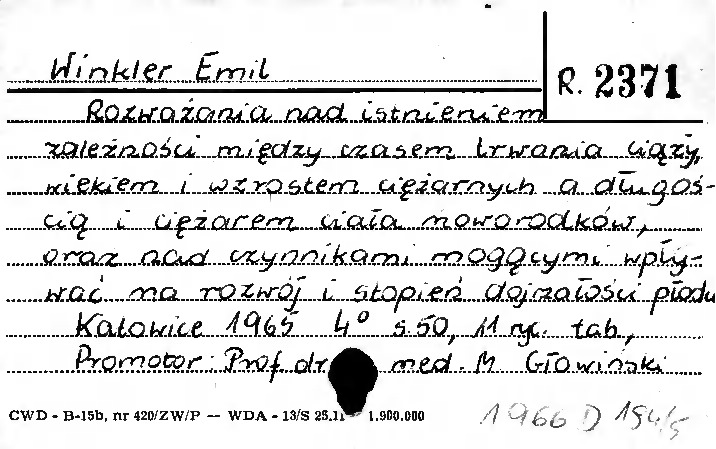 Winkler Emil
R. 2371
Rozważania nad istnieniem
zależności między czasem trwania ciąży,
wiekiem i wzrostem ciężarnych a długoś-
cią i ciężarem ciała noworodków,
oraz nad czynnikami mogącymi wpły-
wać na rozwój i stopień dojrzałości płodu
Katowice 1965 4° s.50, 11 ryc. tab,
Promotor: Prof dr med. M Głowiński
CWD - B-15b, nr 420/ZW/P — WDA - 13/S 25.11 1.900.000
1966 D 194/5